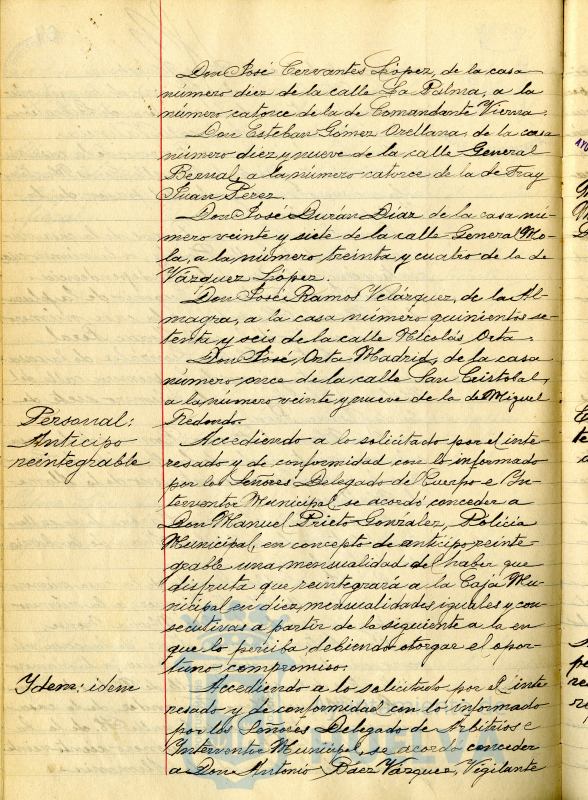 Don José Cervantes López, de la casa
número diez de la calle La Palma, a la
número catorce de la de Comandante Vierna.
Don Esteban Gómez Orellana, de la casa
número diez y nueve de la calle General
Bernal, a la número catorce de la de Fray
Juan Pérez.
Don José Durán Díaz, de la casa nú-
mero veinte y siete de la calle General Mo-
la, a la número treinta y cuatro de la de
Vázquez López.
Don José Ramos Velázquez, de la Al-
magra, a la casa número quinientos se-
tenta y seis de la calle Nicolás Orta.
Don José Orta Madrid, de la casa
número once de la calle San Cristobal,
a la numero veinte y nueve de la de Miguel
Redondo.
Personal:
Anticipo
reintegrable
Accediendo a lo solicitado por el inte-
resado y de conformidad con lo informado
por los Señores Delegado del Cuerpo e In-
terventor Municipal, se acordó conceder a
Don Manuel Prieto Gonzalez, Policía
Municipal, en concepto de anticipo reinte-
grable una mensualidad del haber que
disfruta que reintegrará a la Caja Mu-
nicipal en diez mensualidades iguales y con-
secutivas a partir de la siguiente a la en
que lo perciba debiendo otorgar el opor-
tuno compromiso.
Ydem: idem
Accediendo a lo solicitado por el inte-
resado y de conformidad con lo informado
por los Señores Delegado de Arbitrios e
Interventor Municipal, se acordó conceder
a Don Antonio Báez Vázquez, Vigilante